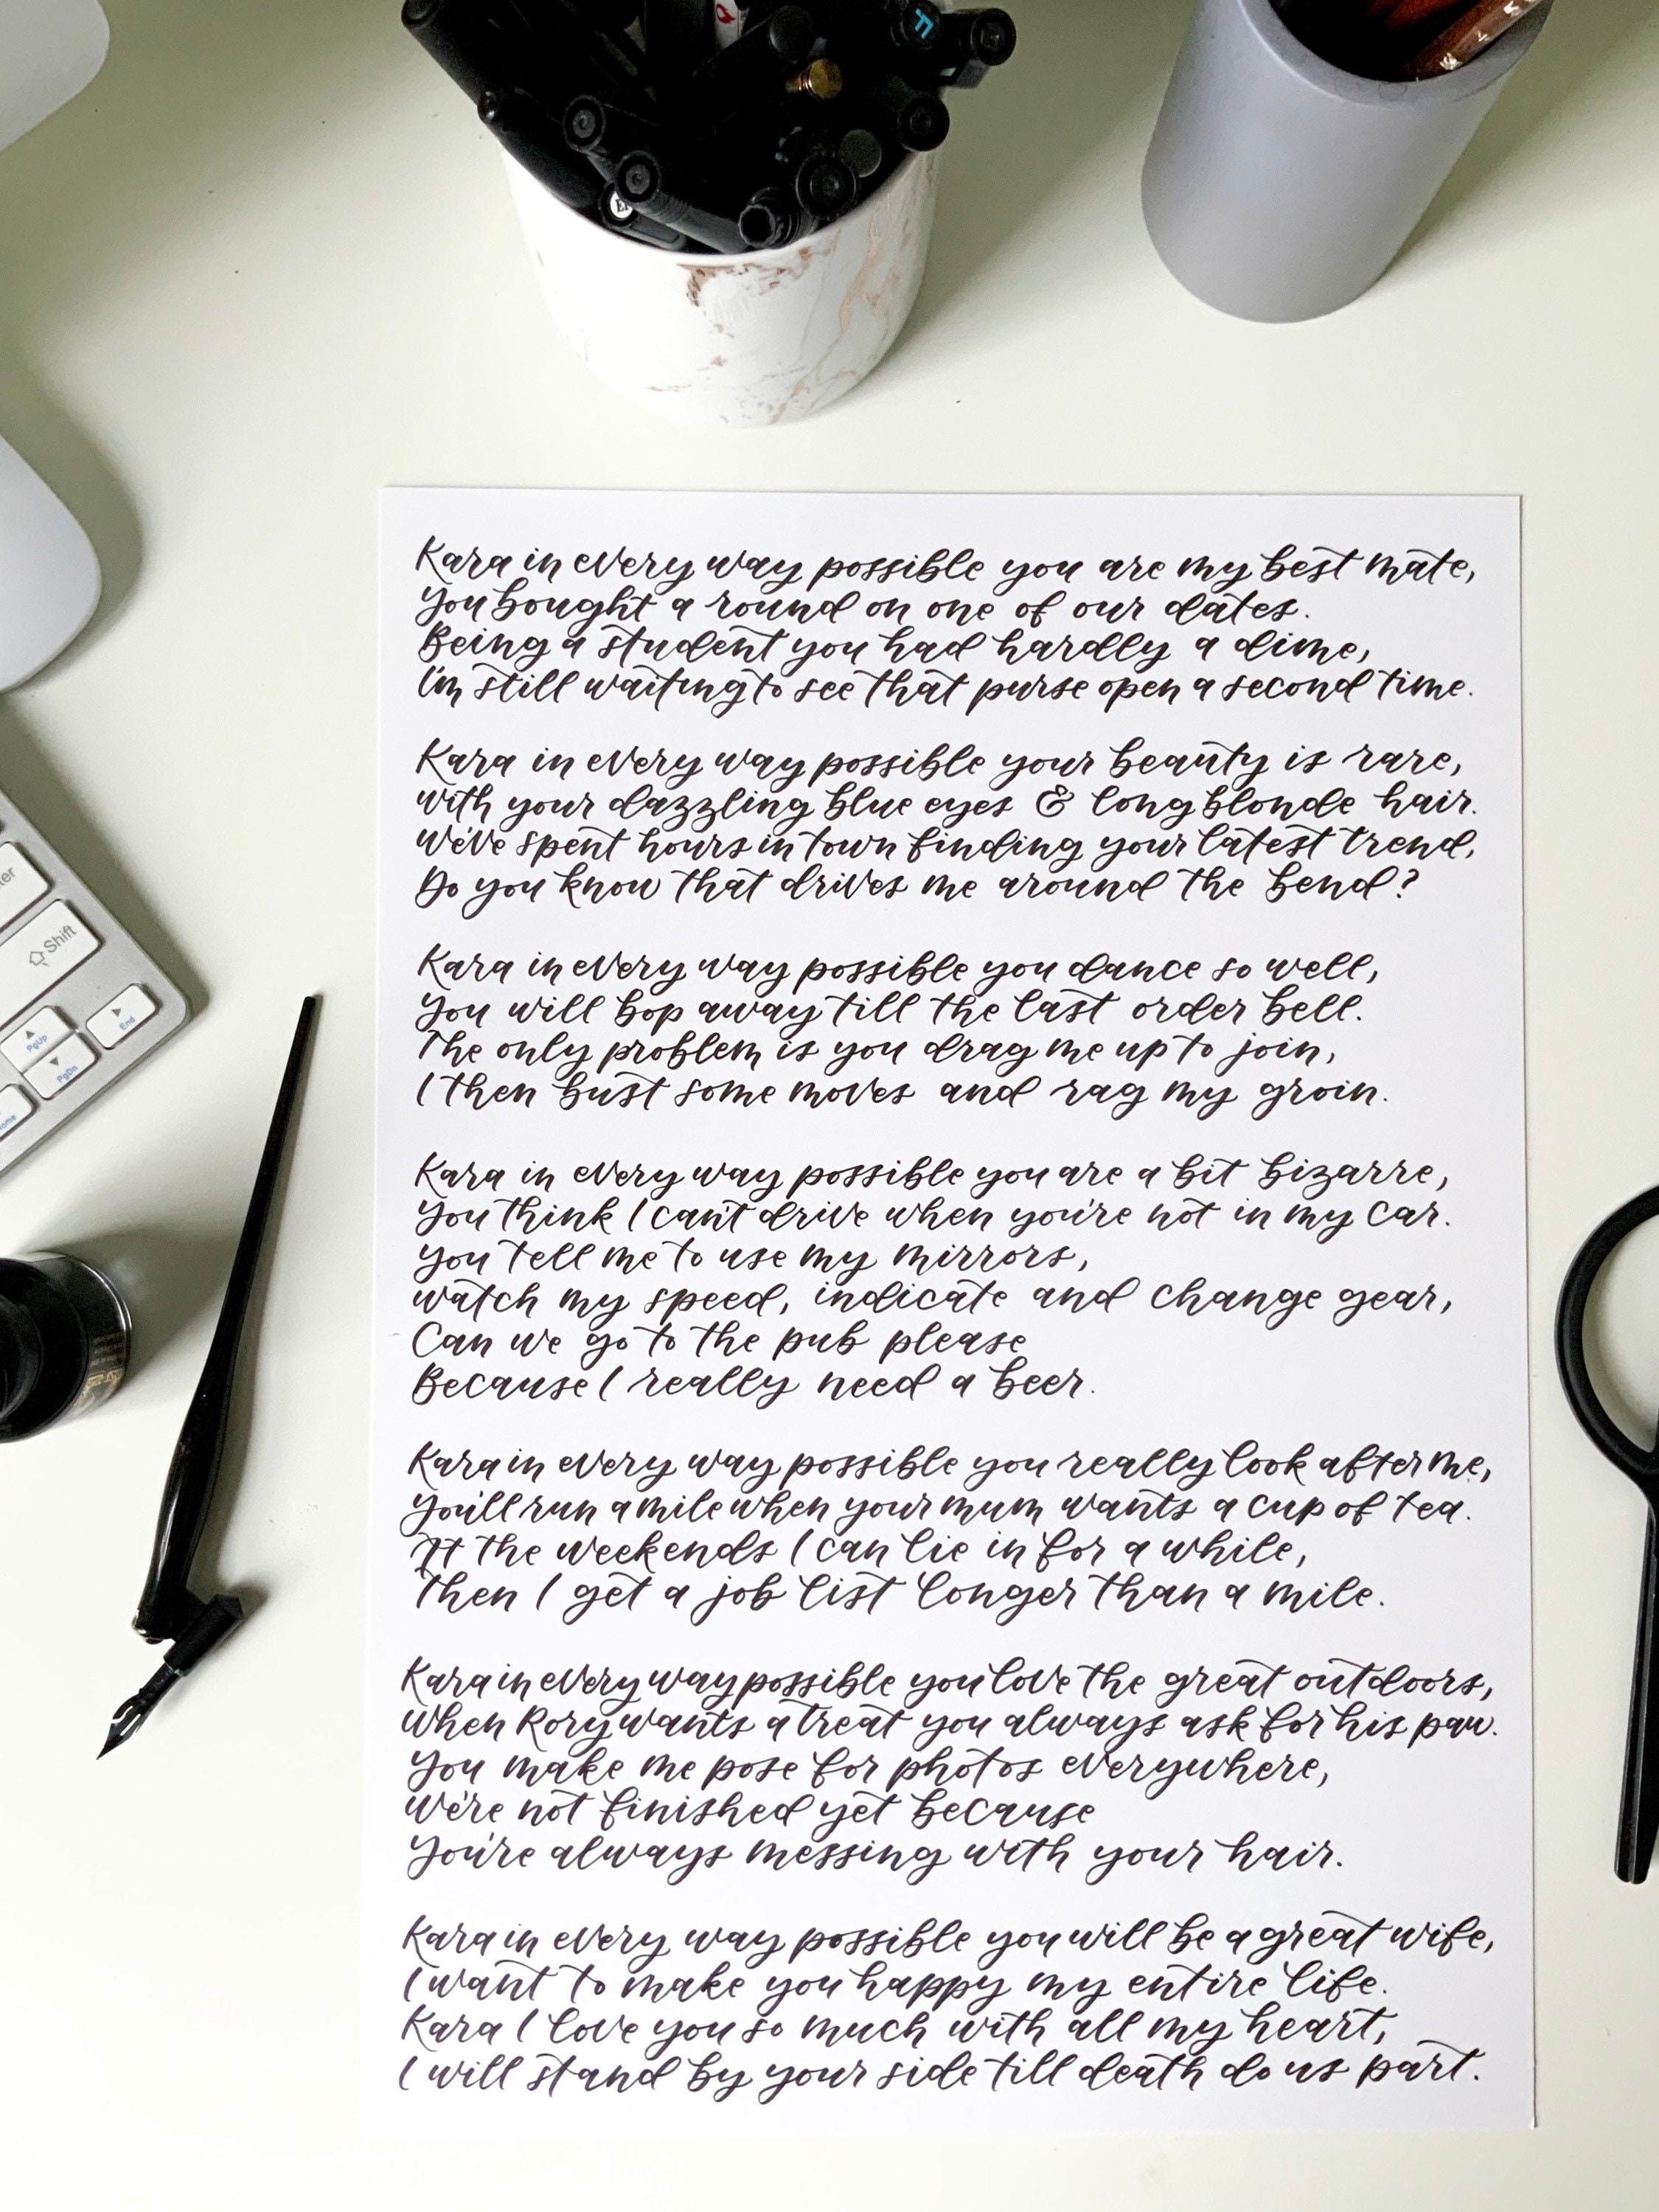 F
EF
er
Shift
PgUp
End
PgDn
Home
Kara in every way possible you are my best mate,
You bought a round on one of our dates.
Being a student you had hardly a dime,
I'm still waiting to see that purse open a second time.
Kara in every way possible your beauty is rare,
With your dazzling blue eyes & long blonde hair.
We've spent hours in town finding your latest trend,
Do you know that drives me around the bend?
Kara in every way possible you dance so well,
You will bop away till the last order bell.
The only problem is you drag me up to join,
I then bust some moves and rag my groin.
Kara in every way possible you are a bit bizarre,
You think I can't drive when you're not in my car.
You tell me to use my mirrors,
watch my speed, indicate and change gear,
Can we go to the pub please
Because I really need a beer.
Kara in every way possible you really look after me,
You'll run a mile when your mum wants a cup of tea.
At the weekends I can lie in for a while,
Then I get a job list longer than a mile.
Kara in every way possible you love the great outdoors,
When Rory wants a treat you always ask for his paw.
You make me pose for photos everywhere,
We're not finished yet because
You're always messing with your hair.
Kara in every way possible you will be a great wife,
I want to make you happy my entire life.
Kara I love you so much with all my heart,
I will stand by your side till death do us part.